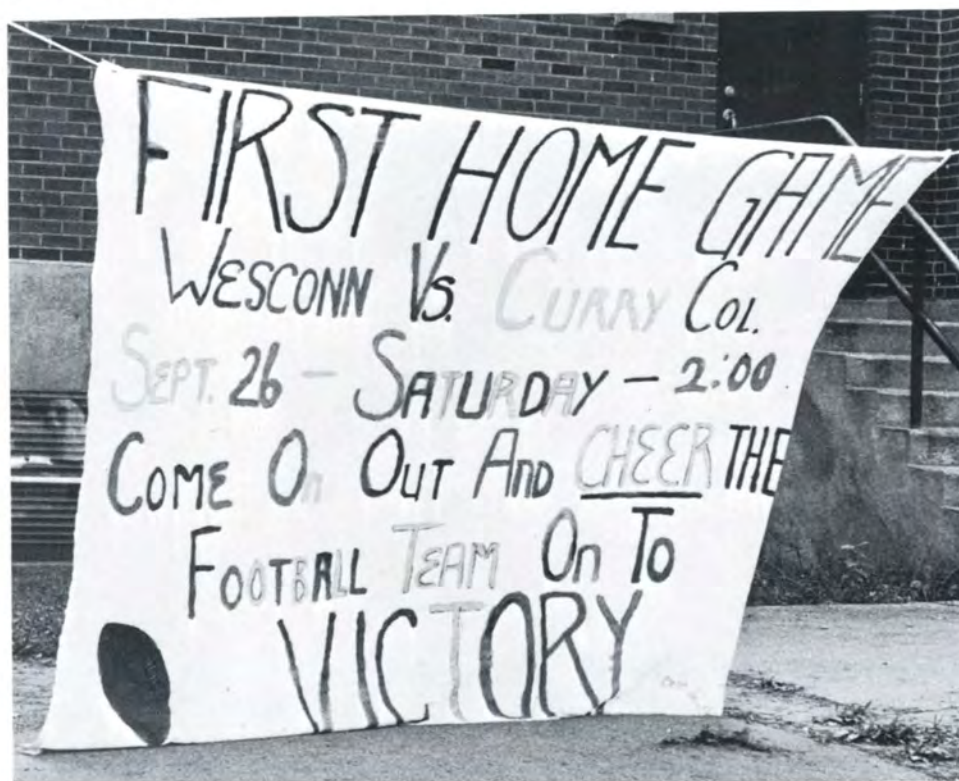 FIRST HOME GAME
WESCONN Vs. CURRY COL.
SEPT. 26 - SATURDAY - 2:00
COME On OUT And CHEER THE
FOOTBALL TEAM On To
VICTORY